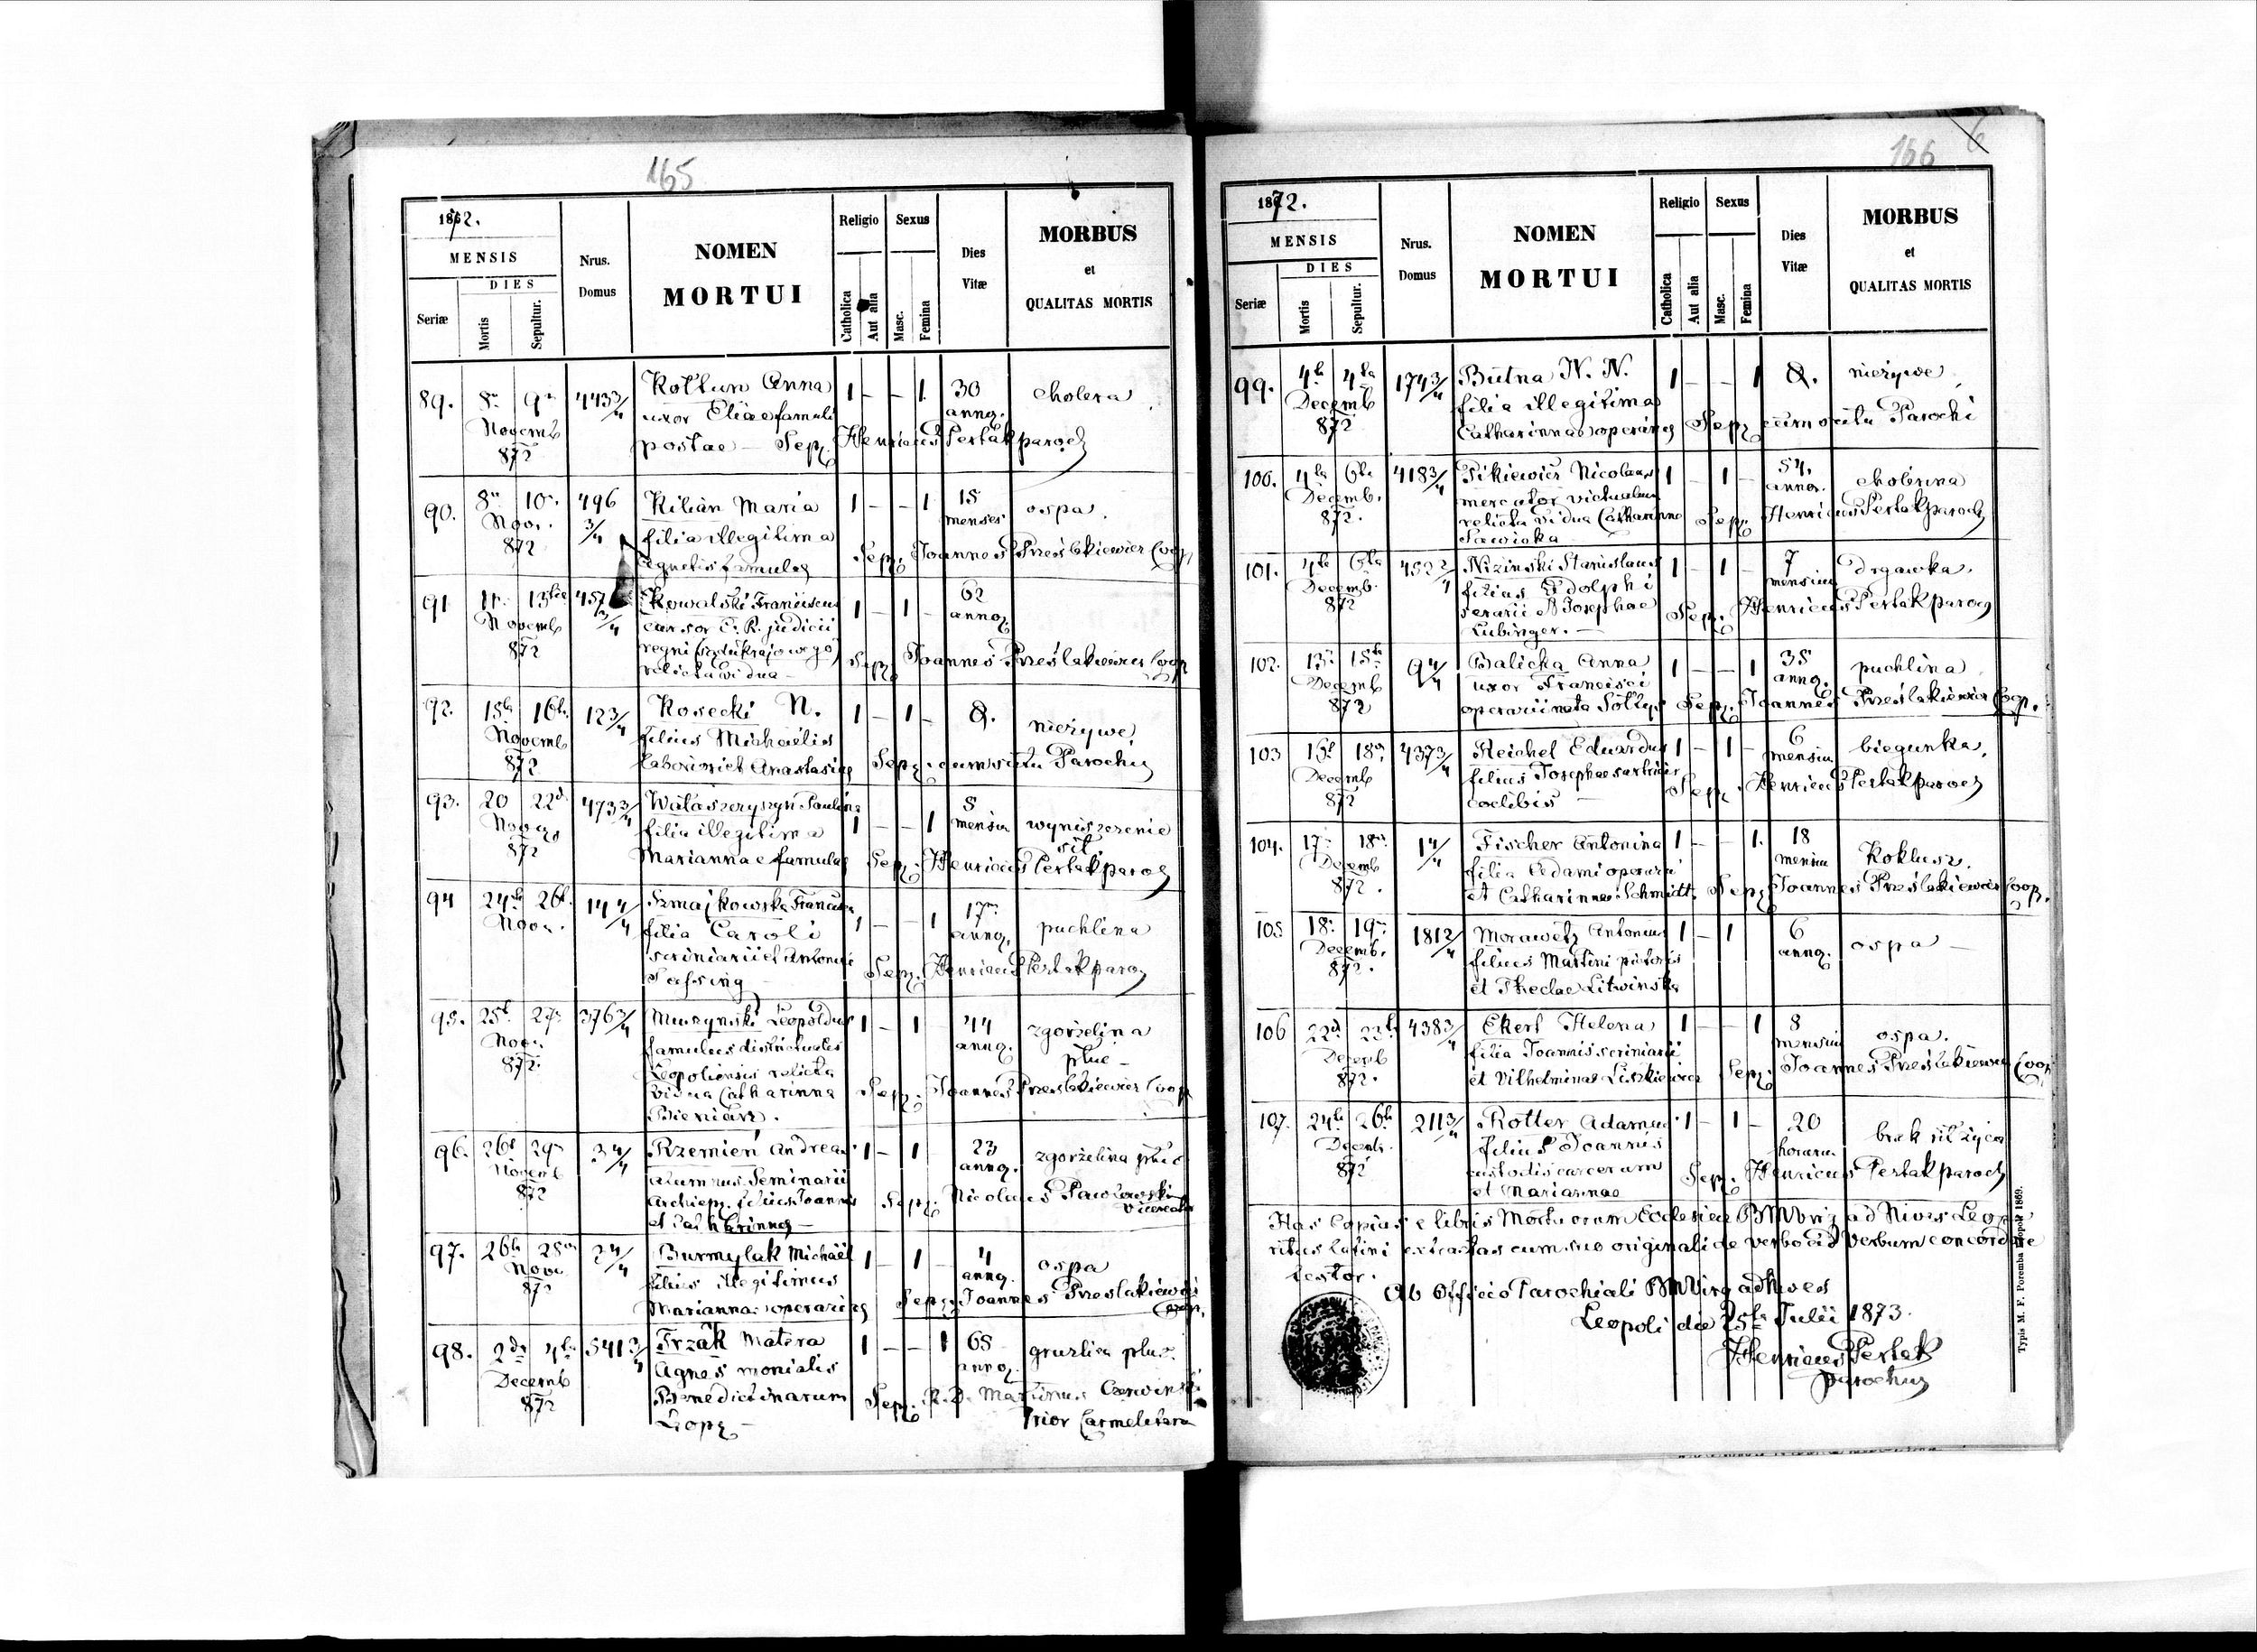 165
1872.
MENSIS
DIES
Seriæ
Mortis
Sepultur.
Nrus.
Domus
NOMEN
MORTUI
Religio
Catholica
Aut alia
Sexus
Masc.
Femina
Dies
Vitæ
MORBUS
et
QUALITAS MORTIS
89. 8 9 443 3/4 Kołtun Anna 1 – – 1. 30 cholera
Novemb uxor Eliae famuli annor.
872 postae – Sep. Henricus Perłak paroch
90. 8 10 496 Kilian Maria 1 – – 1 15 ospa.
Nov. 3/4 filia illegitima menses
872 Agnetis famulae Sep. Joannes Prześlakiewicz Coop.
91 11 13 457 Kowalski Franciscus 1 – 1 – 62
Novemb 3/4 cursor C. R. judicii annor
872 regni (sądu krajowego)
relicta vidua – Sep. Joannes Prześlakiewicz Coop
92. 15 16 12 3/4 Kosecki N. 1 – 1 – 0. nieżywe
Novemb filius Michaelis
872 et Anastasiae Sep. cum scitu Parochi
93. 20 22 473 3/4 Wałaszczyszyn Paulina
Novem filia illegitima 1 – – 1 mensium wyniszczenie
872 Mariannae famulae sił
Sep. Henricus Perłak paroch
94 24 26 14 4/4 Szmajkowska Francisca 1 – – 1 17 puchlina
Nov. filia Caroli annor.
scriniarii et Antoninae
Sep. Henricus Perłak paroch
95. 25 27 376 3/4 Muszyński Leopoldus 1 – 1 44 zgorzelina
Nov. famulus districtualis annor. płuc –
872. Leopoliensis relicta
vidua Catharinna
Bieniarz. Sep. Joannes Prześlakiewicz Coop
96. 26 29 3 4/4 Rzemień Andreas 1 – 1 23 zgorzelina płuc
Novemb alumnus Seminarii annor.
872 Archiep. filius Joannis Sep. Nicolaus Pawłowski
et Catharinnae – Vicerector
97. 26 28 2 4/4 Burmylak Michaël 1 – 1 4 ospa
Nov. filius illegitimus annor.
872 Mariannae operariae Sep. Joannes Prześlakiewicz
Coop.
98. 2 4 541 3/4 Trzák Matera 1 – – 1 65 gruzlica płuc.
Decemb Agnes monialis annor.
872 Benedictinarum Sep. R. D. Martinus Czerwinski
Leop. – Prior Carmelitarum
166
1872.
MENSIS
DIES
Seriæ
Mortis
Sepultur.
Nrus.
Domus
NOMEN
MORTUI
Religio
Catholica
Aut alia
Sexus
Masc.
Femina
Dies
Vitæ
MORBUS
et
QUALITAS MORTIS
99. 4 4 174 3/4 Butna N. N. 1 – – 1 0. nieżywe
Decemb filia illegitima
872 Catharinnae operariae Sep. cum scitu Parochi
100. 4 6 418 3/4 Pikiewicz Nicolaus 1 – 1 – 54. cholerina
Decemb. mercator victualium annor.
872. relicta vidua Catharinna Sep. Henricus Perłak paroch
Sawicka
101. 4 6 452 2/4 Niziński Stanislaus 1 – 1 – 7 drgawka.
Decemb. filius Adolphi mensium
872 serarii et Josephae Sep. Henricus Perłak paroch
Lubinger. –
102. 13 15 9 4/4 Balicka Anna 1 – – 1 35 puchlina
Decemb uxor Francisci annor.
872 operarii nata Sołtys Sep. Joannes Prześlakiewicz Coop.
103 18 437 3/4 Reichel Eduardus 1 – 1 – 6 biegunka.
Decemb filius Josephae mensium
872 coelibis – Sep. Henricus Perłak paroch
104. 17 18 1 4/4 Fischer Antonina 1 – – 1. 18 Koklusz.
Decemb filia Adami operarii mensium
872. et Catharinnae Schmidt. Sep. Joannes Prześlakiewicz Coop.
105 18 19 181 2/4 Morawetz Antonius 1 – 1 6 ospa –
Decemb. filius Martini pictoris annor.
872. et Theclae Litwinska
106 22 23 438 3/4 Ekert Helena 1 – – 1 8 ospa.
Decemb filia Joannis scriniarii mensium
872. et Vilhelminae Liszkiewicz Sep. Joannes Prześlakiewicz Coop.
107. 24 26 211 3/4 Rotter Adamus 1 – 1 – 20 brak sił życia
Decemb. filius Joannis horarum
872 custodis carcerum Sep. Henricus Perłak paroch
et Mariannae
Has Copias e libris Mortuorum Ecclesiae BMVirg ad Nives Leop.
ritus latini extractas cum suo originali de verbo ad verbum concordare
testor.
Ab Officio Parochiali BMVirg ad Nives
Leopoli die 25 Julii 1873.
Henricus Perłak
parochus
Typis M. F. Poremba Leopoli 1869.